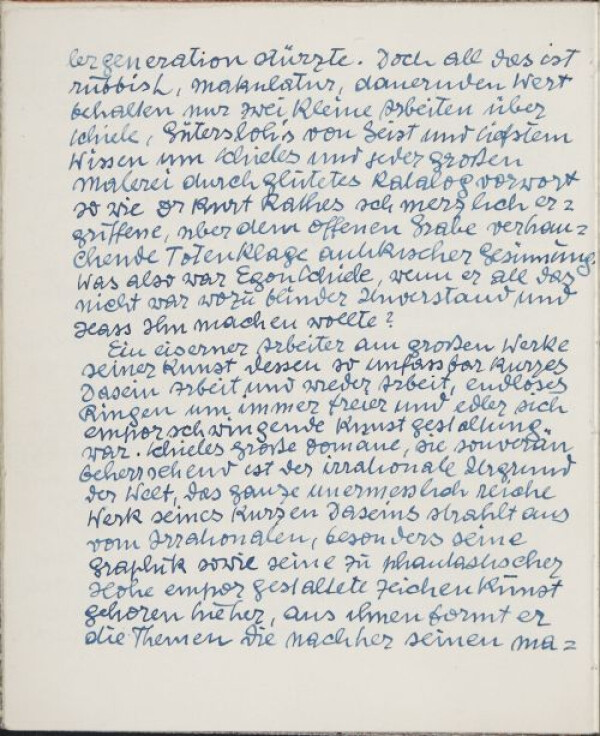 lergeneration stürzte. Doch all das ist
rubbish, makulatur, dauernden Wert
behalten nur zwei kleine Arbeiten über
Schiele, Gütersloh's von Geist und tiefstem
Wissen um Schieles und jeder großen
Malerei durchglütetes Katalogvorwort
so wie Dr Kurt Rathes schmerzlich er=
griffene, über dem offenen Grabe verhau=
chende Totenklage antikischer Gesinnung.
Was also war Egon Schiele, wenn er all das
nicht war wozu blinder Unverstand und
Hass Ihn machen wollte?
Ein eiserner Arbeiter am großen Werke
seiner Kunst dessen so unfassbar kurzes
Dasein Arbeit und wieder Arbeit, endloses
Ringen um immer freier und edler sich
empor schwingende Kunstgestaltung
war. Schieles große Domäne, die souverän
beherrschend ist der irrationale Urgrund
der Welt, das ganze unermesslich reiche
Werk seines kurzen Daseins strahlt aus
vom Irrationalen, besonders seine
Graphik sowie seine zu phantastischer
Höhe empor gestaltete Zeichenkunst
gehören hieher, aus ihnen formt er
die Themen die nachher seinen ma=